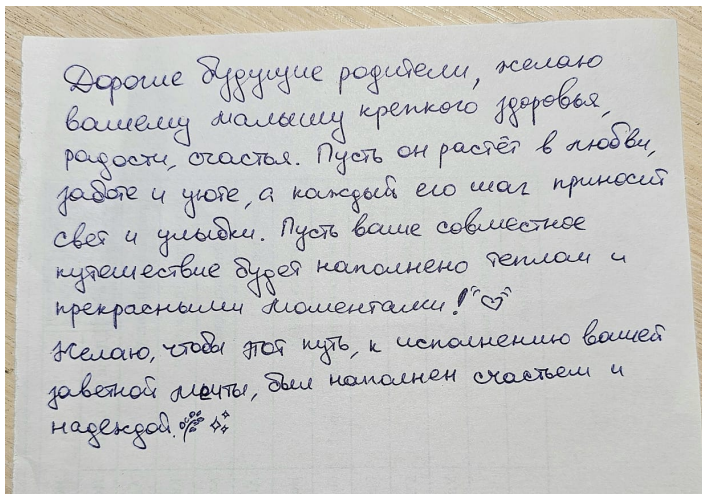 Дорогие будущие родители, желаю
вашему малышу крепкого здоровья,
радости, счастья. Пусть он растёт в любви,
заботе и уюте, а каждый его шаг приносит
свет и улыбки. Пусть ваше совместное
путешествие будет наполнено теплом и
прекрасными моментами!
Желаю, чтобы этот путь, к исполнению вашей
заветной мечты, был наполнен счастьем и
надеждой.